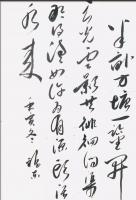 半亩方塘一鉴开
天光云影共徘徊问渠
那得清如许为有源头活
水来